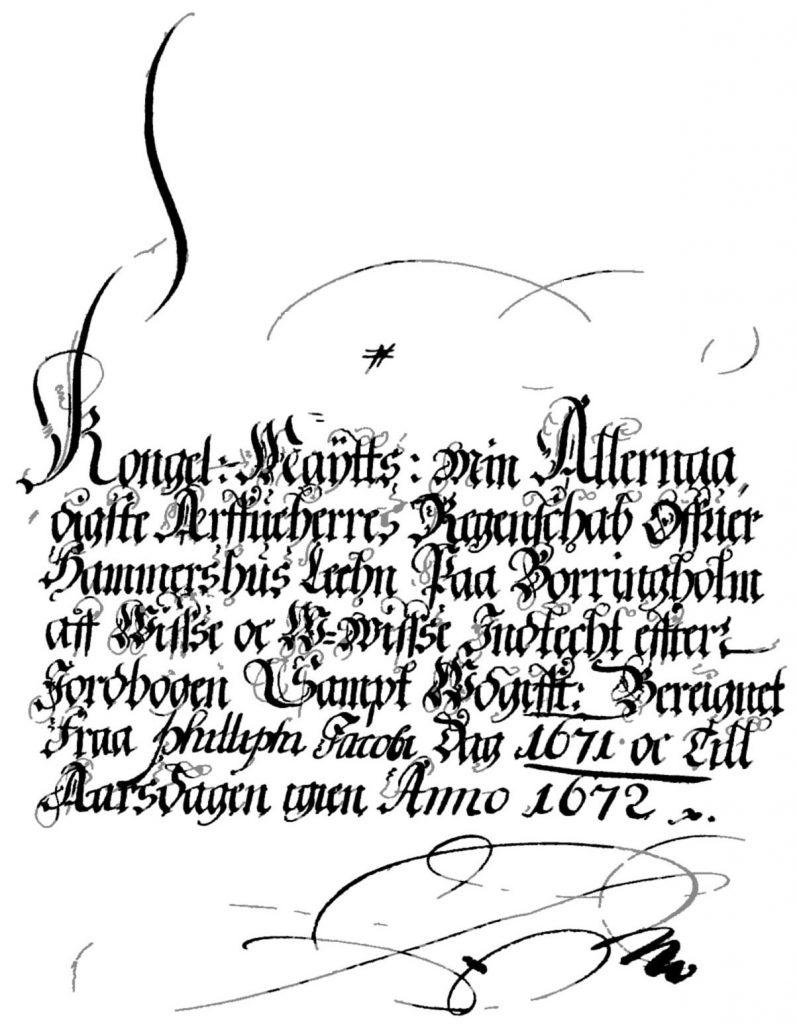 Kongel: Maÿtts: Min Allernaa
digste Arffueherres Regenschab Offuer
Hammershus Leehn Paa Borringholm
aff Wisse oc W=wisse Indtecht effter
Jordbogen Sampt Wdgifft: Bereignet
Fraa Phillippi Jacobi Dag 1671 oc Till
Aarsdagen igien Anno 1672